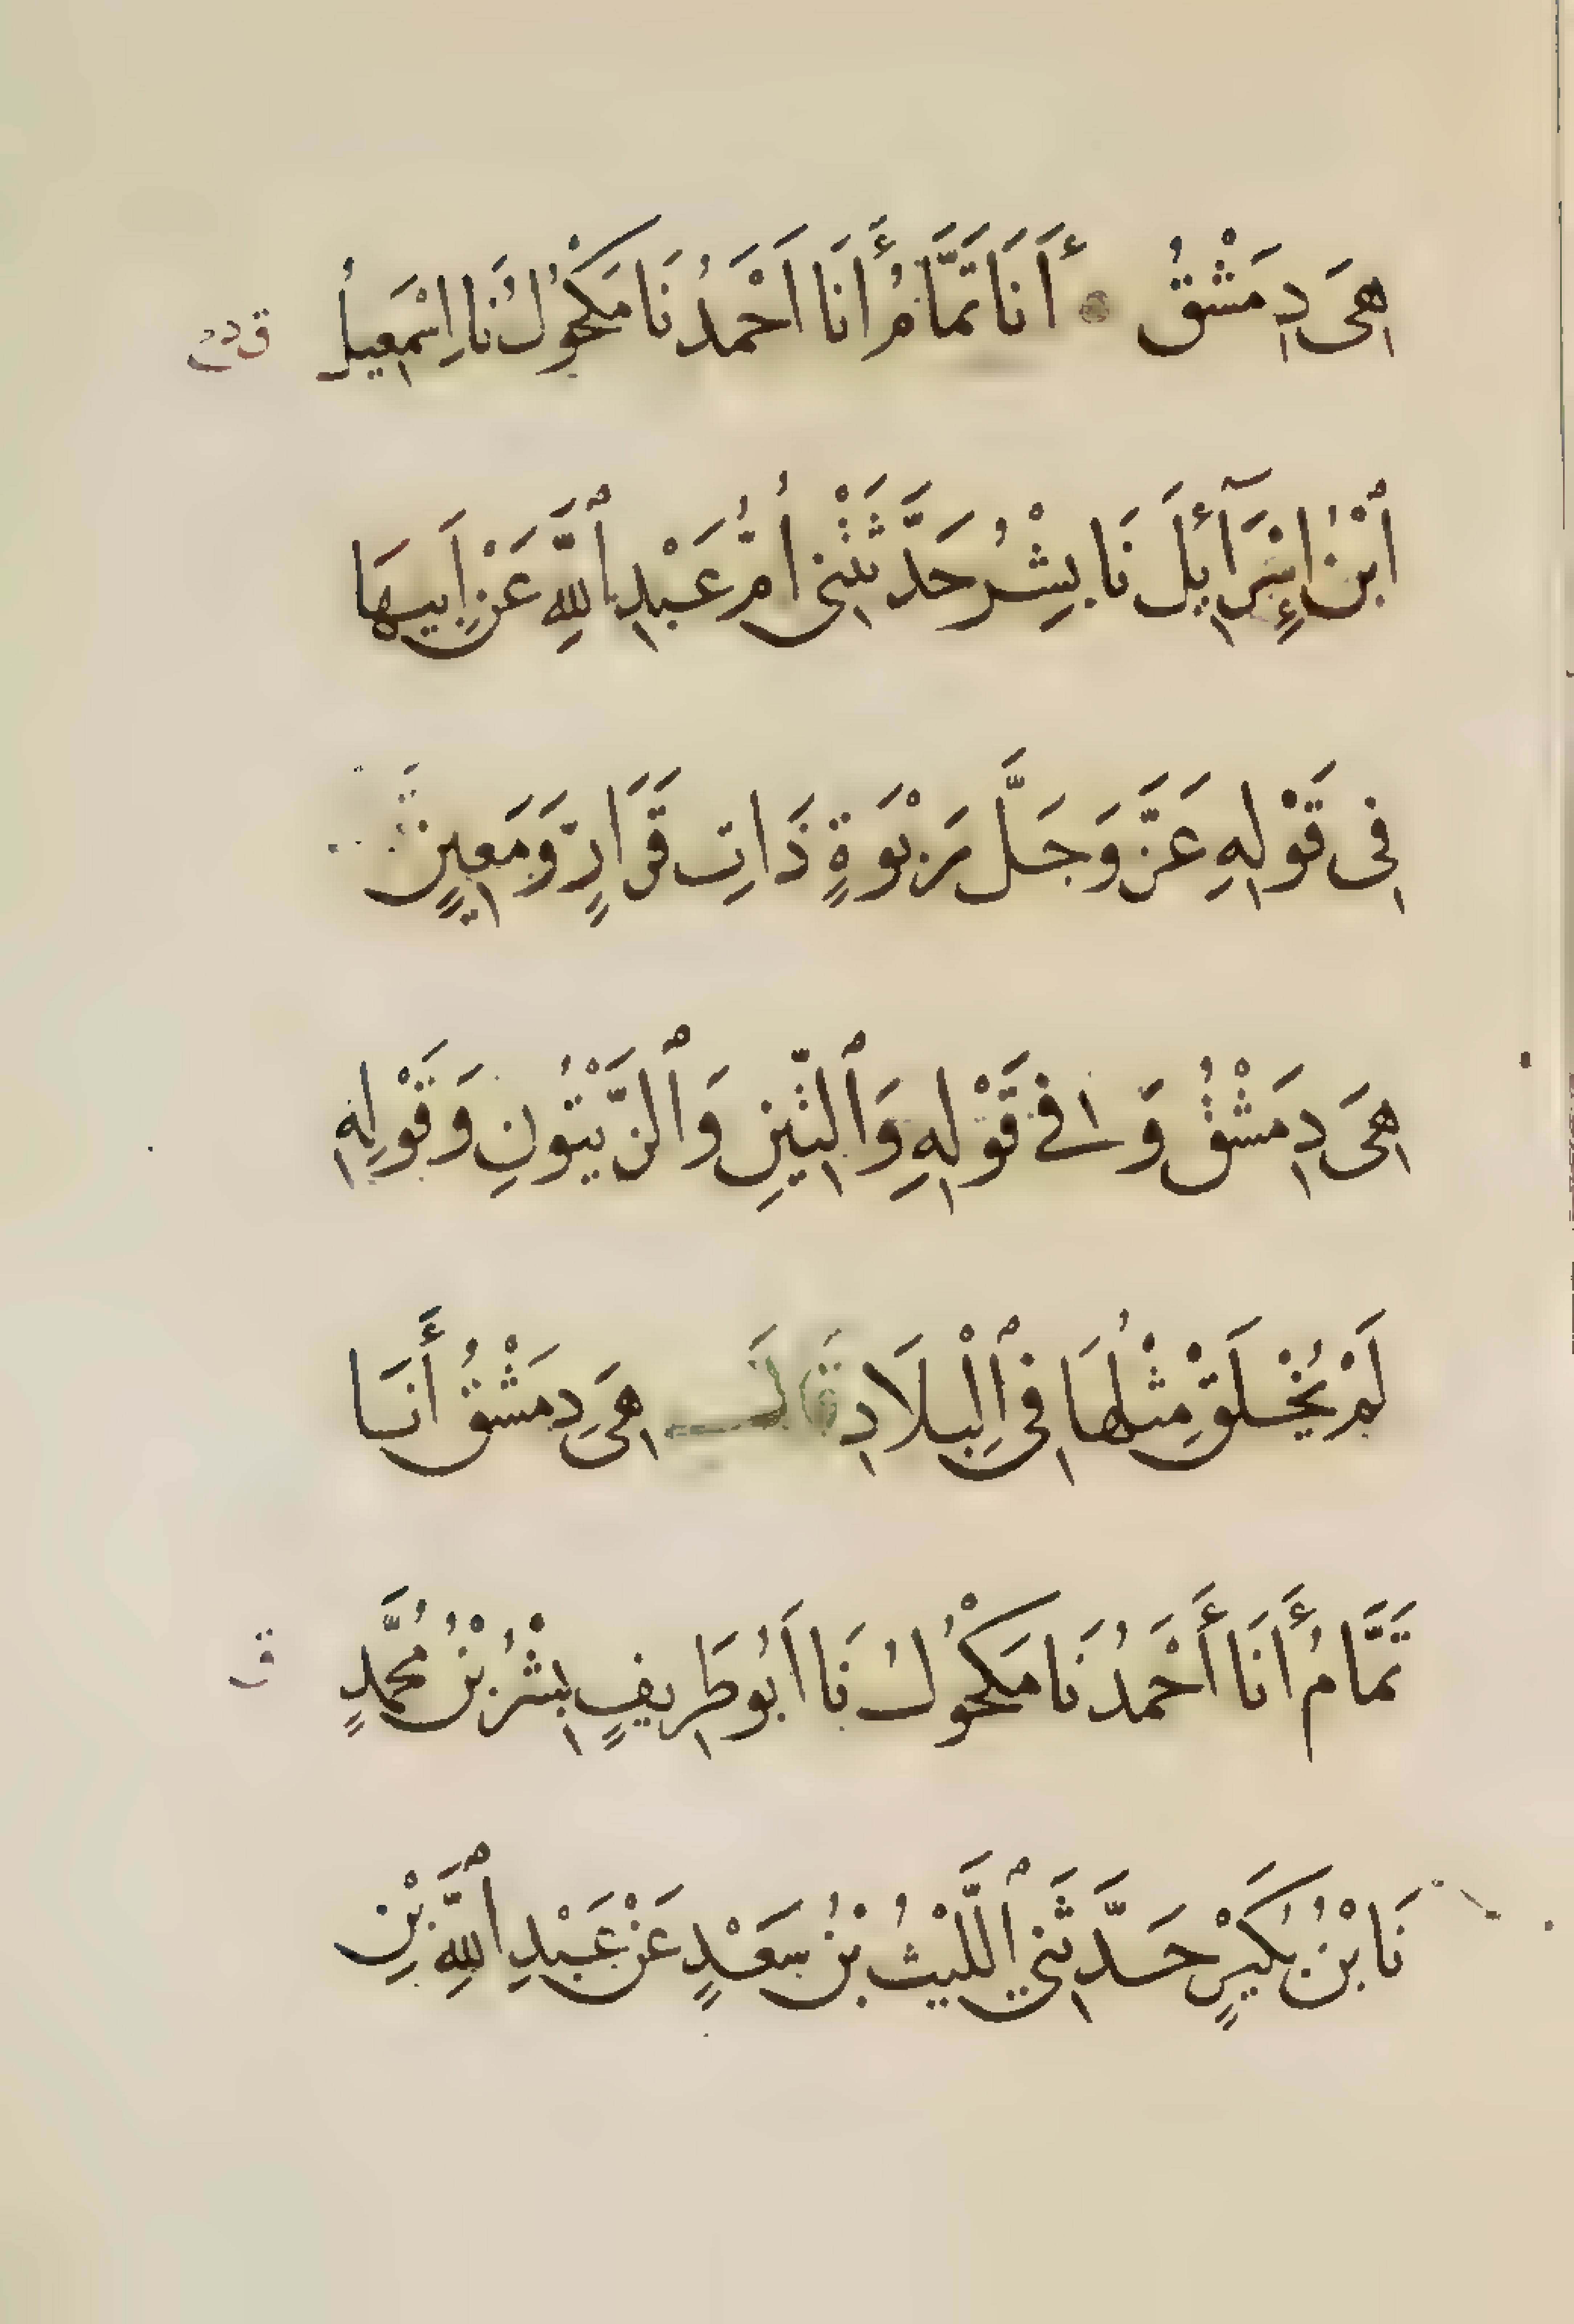 هِيَ دِمَشْقُ أَنَا تَمَّامُ أَنَا اَحْمَدُ نَا مَكْحُولُ نَا اِسْمَعِيلُ
ٱبْنُ إِسْرَآئِلَ نَا بِشْرُ حَدَّثَتْنِى اُمُّ عَبْدِ ٱللَّهِ عَنْ اَبِيهَا
فِى قَوْلِهِ عَزَّ وَجَلَّ رَبْوَةٍ ذَاتِ قَرَارٍ وَّمَعِينٍ
هِىَ دِمَشْقُ وَفِي قَوْلِهِ وَٱلتِّينِ وَٱلزَّيْتُونِ وَقَوْلِهِ
لَمْ يُخْلَقْ مِثْلُهَا فِى ٱلْبِلَادِ قَالَ هِىَ دِمَشْقُ أَنَا
تَمَّامُ أَنَا أَحْمَدُ نَا مَكْحُولُ نَا اَبُو طَرِيفٍ بِشْرُ بْنُ مُحَمَّدٍ
نَا بْنُ بُكَيْرٍ حَدَّثَنِي ٱللَّيْثُ بْنُ سَعْدٍ عَنْ عَبْدِ ٱللَّهِ بْنِ